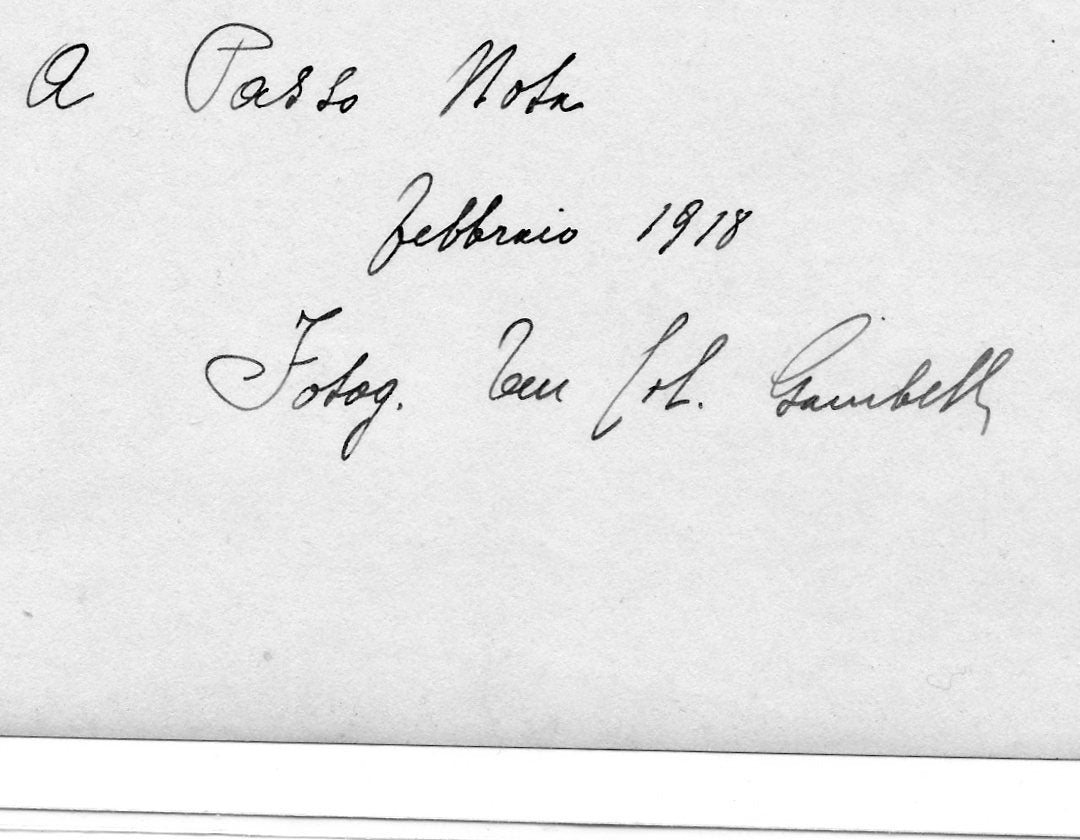 A Passo Nota
febbraio 1918
Fotog. Ten Col.